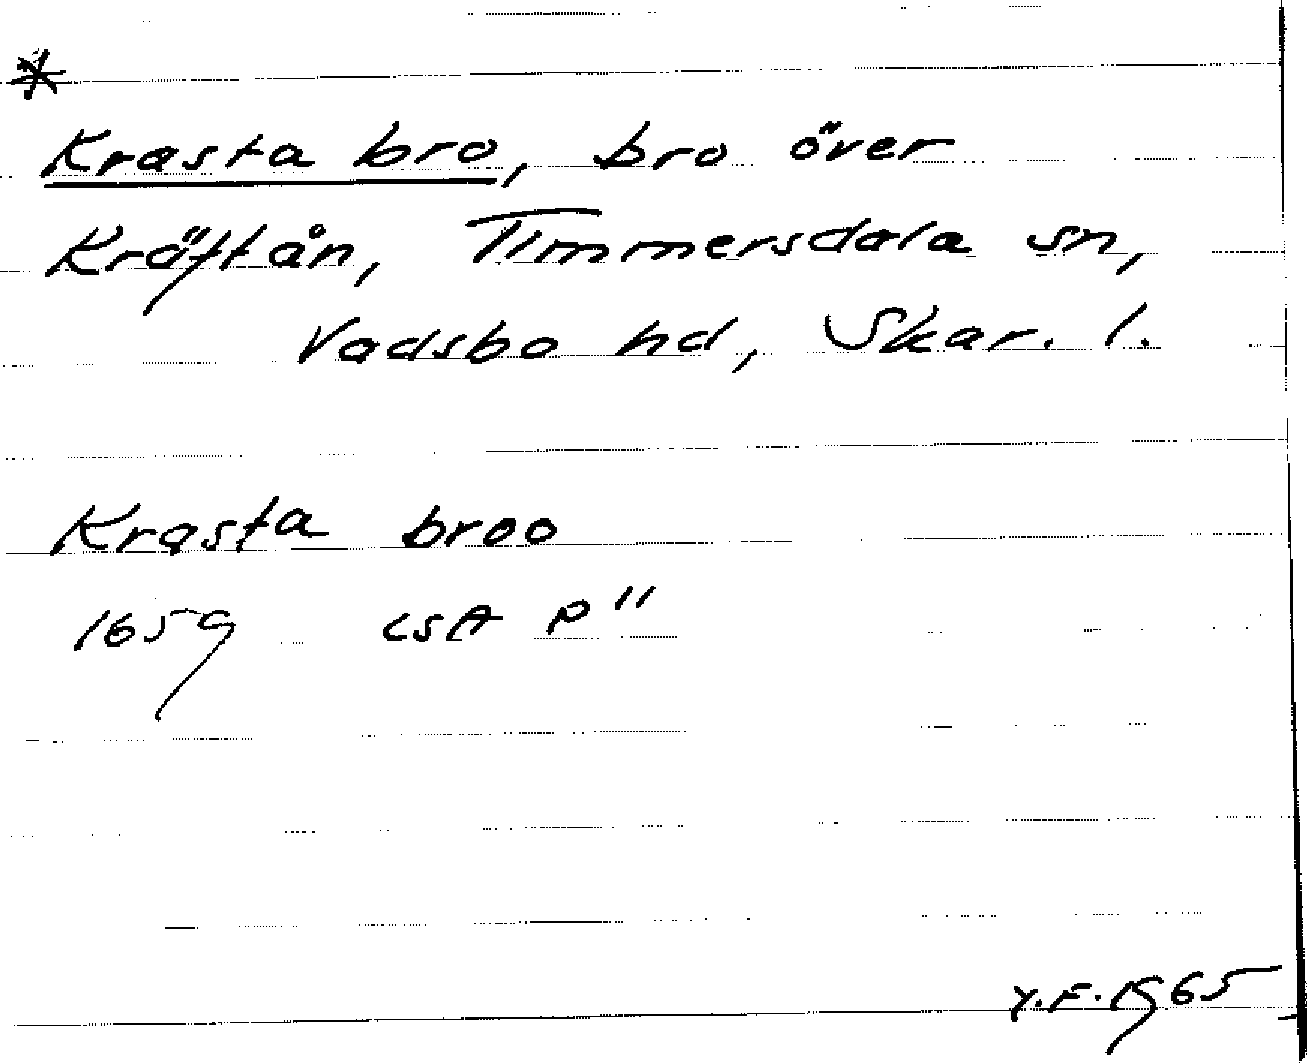 *
Krasta bro, bro över
Kräftån, Timmersdala sn,
Vadsbo hd, Skar. l.
Krasta broo
1659 LSA P"
Y.F. 1965